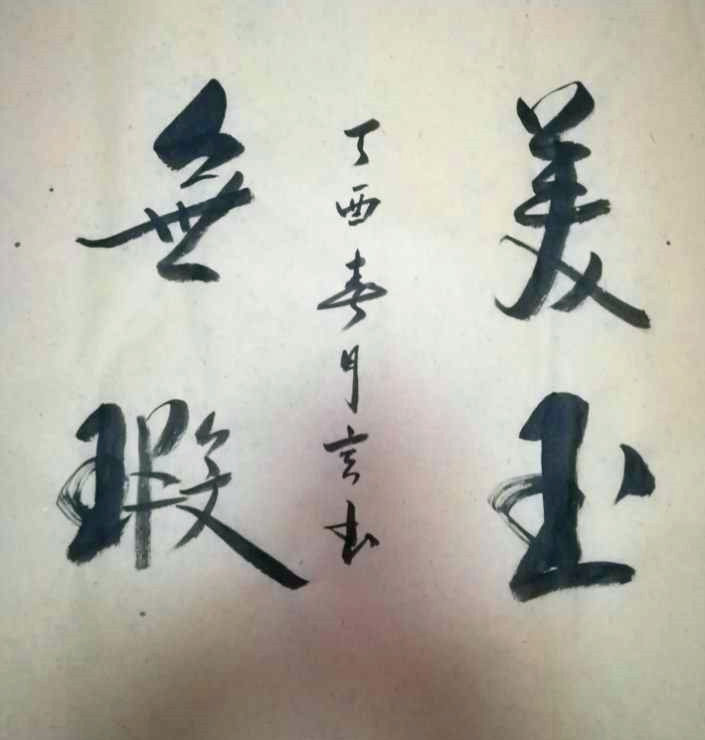 美玉
丁酉春月言书
無瑕